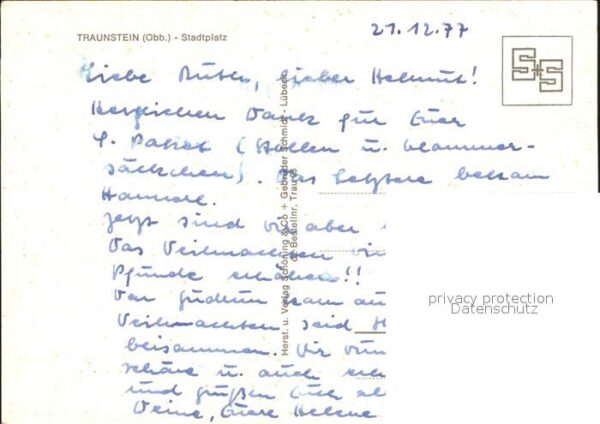 TRAUNSTEIN (Obb.) - Stadtplatz
21.12.77
S+S
Liebe Ruth, lieber Helmut!
Herzlichen Dank für Euer
l. Paket (Stollen u. Klammer-
säckchen). Das letztere bekam
Hannerl.
Jetzt sind wir aber
Das Weihnachten
Pfunde
Von Gudrun kam
Weihnachten seid
beisammen. Wir
schöne u. auch
und grüßen Euch
Deine, Eure Helene
Herst. u. Verlag Schöning & Co + Gebrüder Schmidt - Lübeck
Bestellnr. Trauns
privacy protection
Datenschutz